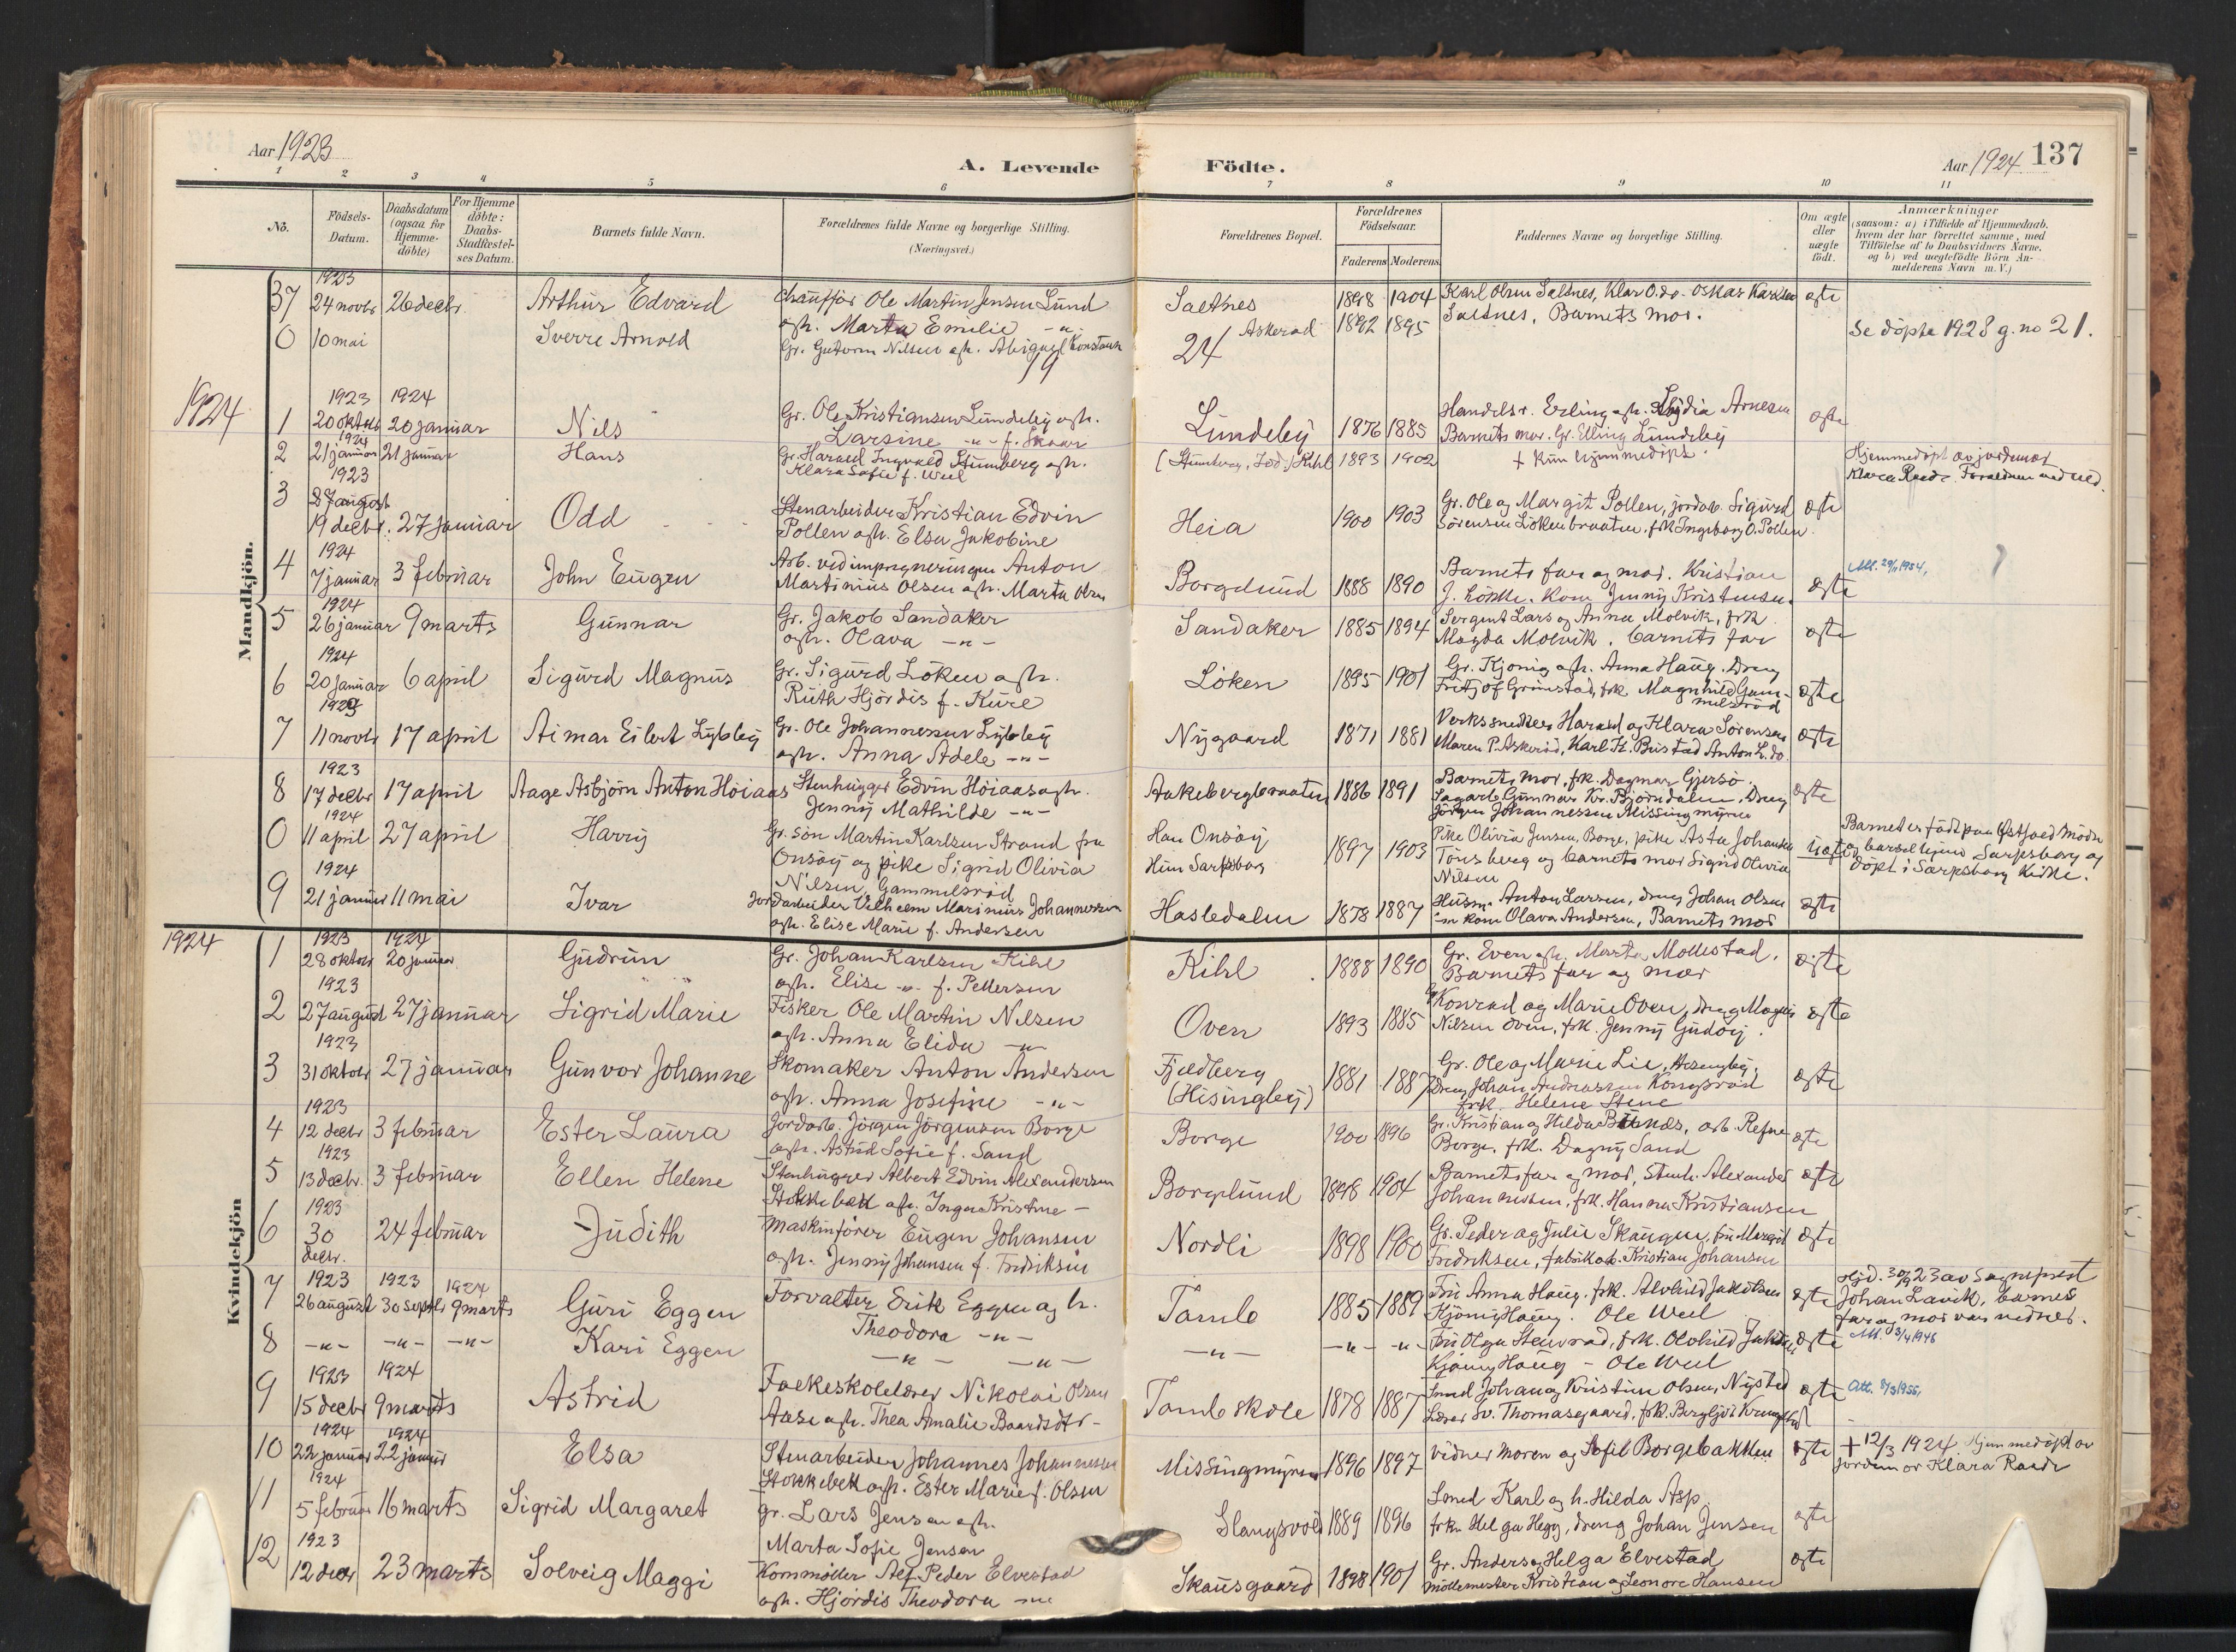 Aar 1923
A. Levende Födte.
Aar 1924 137
1 2 3 4 5 6 7 8 9 10 11
No.
Födsels-Datum.
Daabsdatum (ogsaa for Hjemme-döbte)
For Hjemme döbte: Daabs-Stadfæstel-ses Datum.
Barnets fulde Navn.
Forældrenes fulde Navne og borgerlige Stilling. (Næringsvei.)
Forældrenes Bopæl.
Forældrenes Födselsaar.
Faderens Moderens
Faddernes Navne og borgerlige Stilling.
Om ægte eller uægte födt.
Anmærkninger
(saasom: a) i Tilfælde af Hjemmedaab, hvem der har forrettet samme, med Tilföielse af to Daabsvidners Navne, og b) ved uægtefödte Börn An-melderens Navn m. V.)
Mandkjön.
1923
37 24 novbr 26 decbr. Arthur Edvard Chaufför Ole Martin Jensen Lund Saltnes 1898 1904 Karl Olsen Saltnes, Klar O. do - Oskar Karlsen ægte
ash. Marta Emilie -"- Saltnes, Barnets mor.
0 10 mai Sverre Arnold Gr. Guttorm Nilsen ash. Abigael Konstanse Askerød 1892 1895 Se döpte 1928 g. no 21.
19 24
1924
1923 1924
1 20 oktob 20 januar Nils Gr. Ole Kristiansen Lundeby ash. Lundeby 1876 1885 Handelsr. Erling ash. Lydia Arnesen ægte
Larsine -"- f. Skaar Barnets mor. Gr. Elling Lundeby
1924
2 21 januar 21 januar Hans Gr. Harald Ingvald Stumberg ash. Kihl 1893 1902 + Kun hjemmedöpt. Hjemmedöpt av jordemor
Klara Sofie f. Weel Klara Raade. Foreldrene
1923
3 27 august
19 decbr. 27 januar Odd Stenarbeider Kristian Edvin Heia 1900 1903 Gr. Ole og Margit Pollen, jordarb. Sigurd ægte
Pollen ash. Elsa Jakobine Sörensen Lökenbraaten, frk Ingeborg O. Pollen
1924
4 7 januar 3 februar John Eugen Arb. ved impregneringen Anton Borgelund 1888 1890 Barnets far og mor. Kristian ægte
Martinius Olsen ash. Marta Olsen J. Kone Jenny Kristensen.
1924
5 26 januar 9 marts Gunnar Gr. Jakob Sandaker Sandaker 1885 1894 Sergent Lars og Anna Molvik, frk ægte
ash. Olava -"- Magda Molvik. barnets far
1924
6 20 januar 6 april Sigurd Magnus Gr. Sigurd Löken ash. Löken 1895 1901 Gr. Kjönig ash. Anna Haug. Dreng ægte
Ruth Hjördis f. Kure Fritjof Grimstad, frk. Magnhild Gam-melsröd
1923
7 11 novbr 17 april Aimar Eilert Lyby Gr. Ole Johannessen Lyby Nygaard 1871 1881 Verkssnedker Harald og Klara Sörensen ægte
ash. Anna Adele -"- Maren P. Askeröd, Karl H. Bristad Anton L. do
1923
8 17 decbr 17 april Aage Asbjörn Anton Höiaas Stenhugger Edvin Höiaas ash. Aakebergbraaten 1886 1891 Barnets mor, frk. Dagmar Gjersö. ægte
Jenny Mathilde -"- Sagarb. Gunnar Kr. Björndalen, Dreng
Jörgen Johannessen Missingmyren
1924
0 11 april 27 april Harry Gr. sön Martin Karlsen Strand fra Han Onsöy 1897 1903 Pike Olivia Jensen, Borge, pike Asta Johansen uægte Barnet er födt paa Östfold mödre
Onsöy og pike Sigrid Olivia Hun Sarpsborg Tönsberg og barnets mor Sigrid Olivia og barselhjem Sarpsborg og
Nilsen Gammelsröd Nilsen döpt i Sarpsborg Kirke.
1924
9 21 januar 11 mai Ivar Jordarbeider Vilhelm Marinius Johannessen Hasledalen 1878 1887 Husm. Anton Larsen, dreng Johan Olsen ægte
ash. Elise Marie f. Andersen Olava Andersen, Barnets mor
1924
Kvindekjön
1923 1924
1 28 oktobr 20 januar Gudrun Gr. Johan Karlsen Kihl Kihl 1888 1890 Gr. Even ash. Marta Mollestad, ægte
ash. Elise -"- f. Pettersen Barnets far og mor
1923
2 27 august 27 januar Sigrid Marie Fisker Ole Martin Nilsen Oven 1893 1885 Konrad og Marie Oven, dreng Magnus ægte
ash. Anna Elida -"- Nilsen Oven, frk. Jenny Gudöy.
1923
3 31 oktobr 27 januar Gunvor Johanne Skomaker Anton Andersen Fjeldberg 1881 1887 Gr. Ole og Marie Lie, ægte
ash. Anna Josefine -"- (Hisingby) Dreng Johan Andreassen Kongsröd
frk. Helene Stene
1923
4 12 decbr 3 februar Ester Laura Jordarb. Jörgen Jörgensen Borge Borge 1900 1896 Gr. Kristian og Hilda Bøkenes, arb. Refne ægte
ash. Astrid Sofie f. Sand Borge, frk. Dagny Sand
1923
5 13 decbr. 3 februar Ellen Helene Stenhugger Albert Edvin Alexandersen Borgelund 1898 1904 Barnets far og mor, Stenh. Alexander ægte
Stokkebæk ash. Inga Kristine - Johannessen, frk. Hanna Kristiansen
1923
6 30 decbr. 24 februar Judith Maskinförer Eugen Johansen Nordli 1898 1900 Gr. Peder og Julie Skaugen, fru Margit ægte
ash. Jenny Johansen f. Fredriksen Fredriksen, fabrikarb. Kristian Johansen
1923 1923 1924
7 26 august 30 septbr 9 marts Guri Eggen Forvalter Erik Eggen og h. Tomb 1885 1889 Fru Anna Haug, frk. Alvhild Jakobsen ægte Hjd. 30/9 23 av sogneprest
Theodora -"- Kjönig Haug. Ole Weel Johan Lavik, barnets
far og mor var vidner.
8 -"- -"- -"- Kari Eggen -"- -"- -"- -"- -"- Fru Olga Stenrød, frk. Olohild Jakobsen ægte Att. 3/4 1946
Kjönig Haug - Ole Weel
1923 1924
9 15 decbr 9 marts Astrid Folkeskolelærer Nikolai Olsen Tomb skole 1878 1887 Smed Johan og Kristine Olsen, Nysted ægte Att. 8/3 1955,
Aase ash. Thea Amalie Baardsdtr - Lærer Sv. Thomasgaard, frk. Bergljot
1924 1924
10 22 januar 22 januar Elsa Stenarbeider Johannes Johannessen Missingmyren 1896 1897 vidner moren og Sofie Borgebakken ægte + 12/3 1924. Hjemmedöpt av
Stokkebæk ash. Ester Marie f. Olsen jordemor Klara Raade
1924
11 5 februar 16 marts Sigrid Margaret gr. Lars Jensen ash. Slangsvold 1889 1896 Smed Karl og h. Hilda Asp ægte
Marta Sofie Jensen frk. Helga Hegg, dreng Johan Jensen
1923
12 12 decbr 23 marts Solveig Maggi Kornmöller Alf Peder Elvestad Skausgaard 1898 1901 Gr. Anders og Helga Elvestad ægte
ash. Hjördis Theodora -"- möllemester Kristian og Leonore Hansen